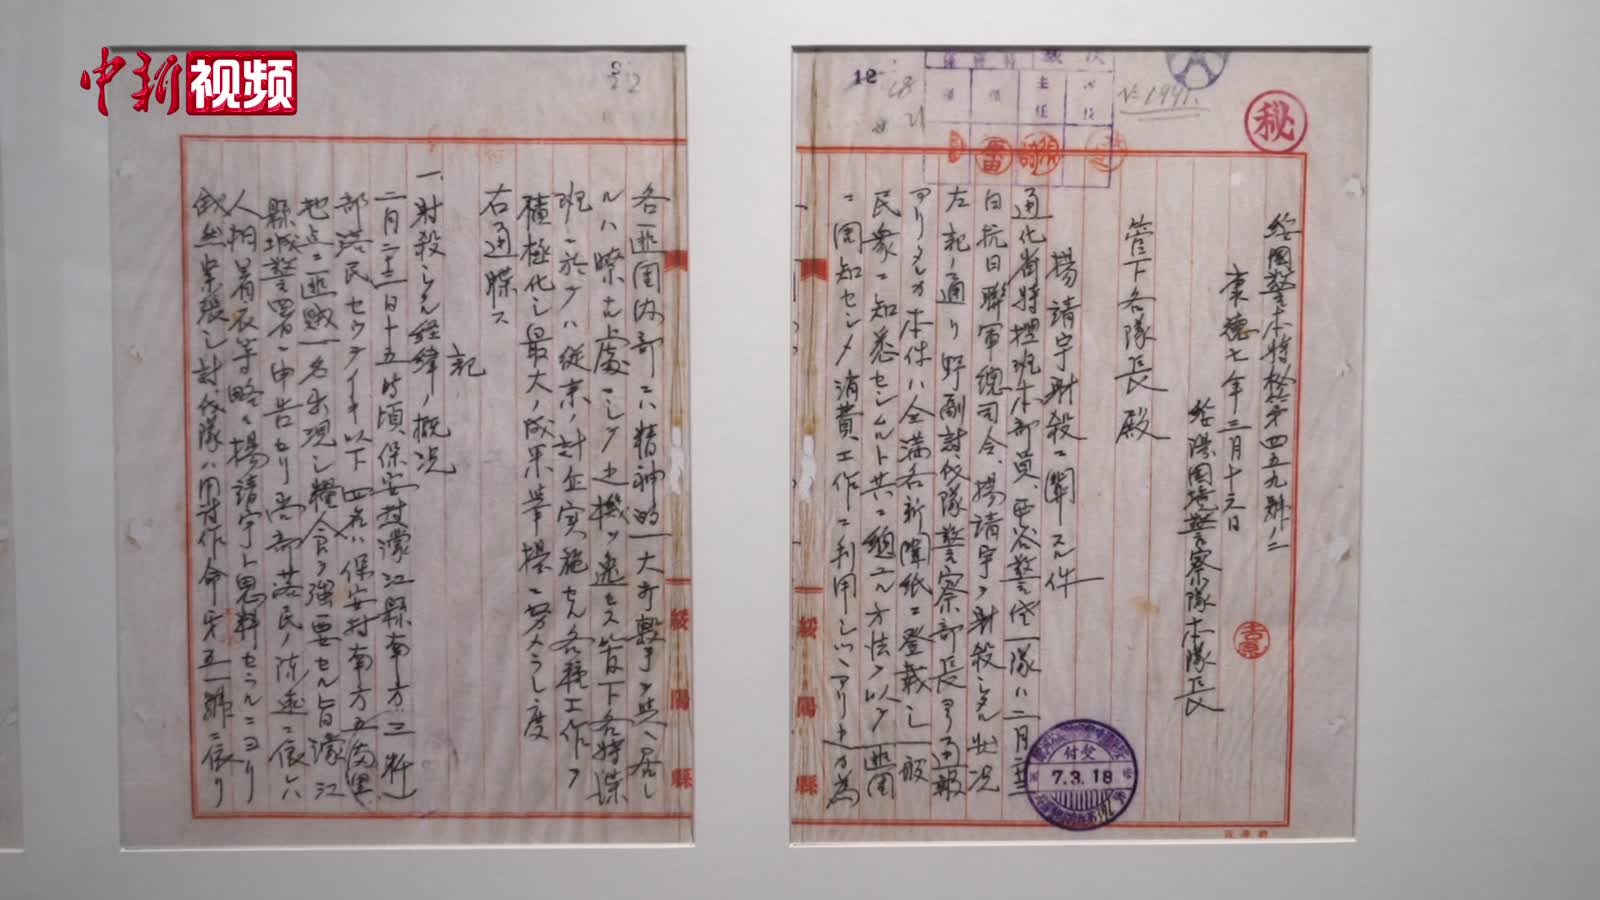 中新视频
秘
12
No 1991.
主任
綏國警本特秘第四五九號ノ二
康德七年三月十六日
綏陽國境警察隊本隊長
管下各隊長殿
楊靖宇射殺ニ關スル件
通化省特搜班本部員西谷警佐一隊ハ二月二十三
日抗日聯軍總司令楊靖宇ヲ射殺シタル狀況
左記ノ通リ野副討伐隊警察部長ヨリ通報
アリタルカ本件ハ全滿各新聞紙ニ登載シ一般
民衆ニ知悉セシムルト共ニ總ユル方法ヲ以テ匪團
ニ周知セシメ消費工作ニ利用シツツアリ
付受
7.3.18
綏陽縣
各匪團內部ニハ精神的一大打擊ヲ與ヘ居
ルハ瞭ナル處ニシテ此機ヲ逸セス管下各特諜
班ニ於テハ從來ノ計企實施セル各種工作ヲ
積極化シ最大ノ成果擧揚ニ努メラレ度
右通牒ス
記
一、射殺シタル經緯ノ概況
二月二十三日十五時頃保安村濛江縣南方三粁
部落民セウテイキ以下四名ハ保安村南方五滿里
地点ニ匪賊一名出現シ糧食ヲ強要セル旨濛江
縣城警署ニ申告セリ當部落民ノ陳述ニ依レハ
人相着衣等略々楊靖宇ト思料セラルニヨリ
俄然緊張シ討伐隊ハ用討作命第五一號ニ依リ